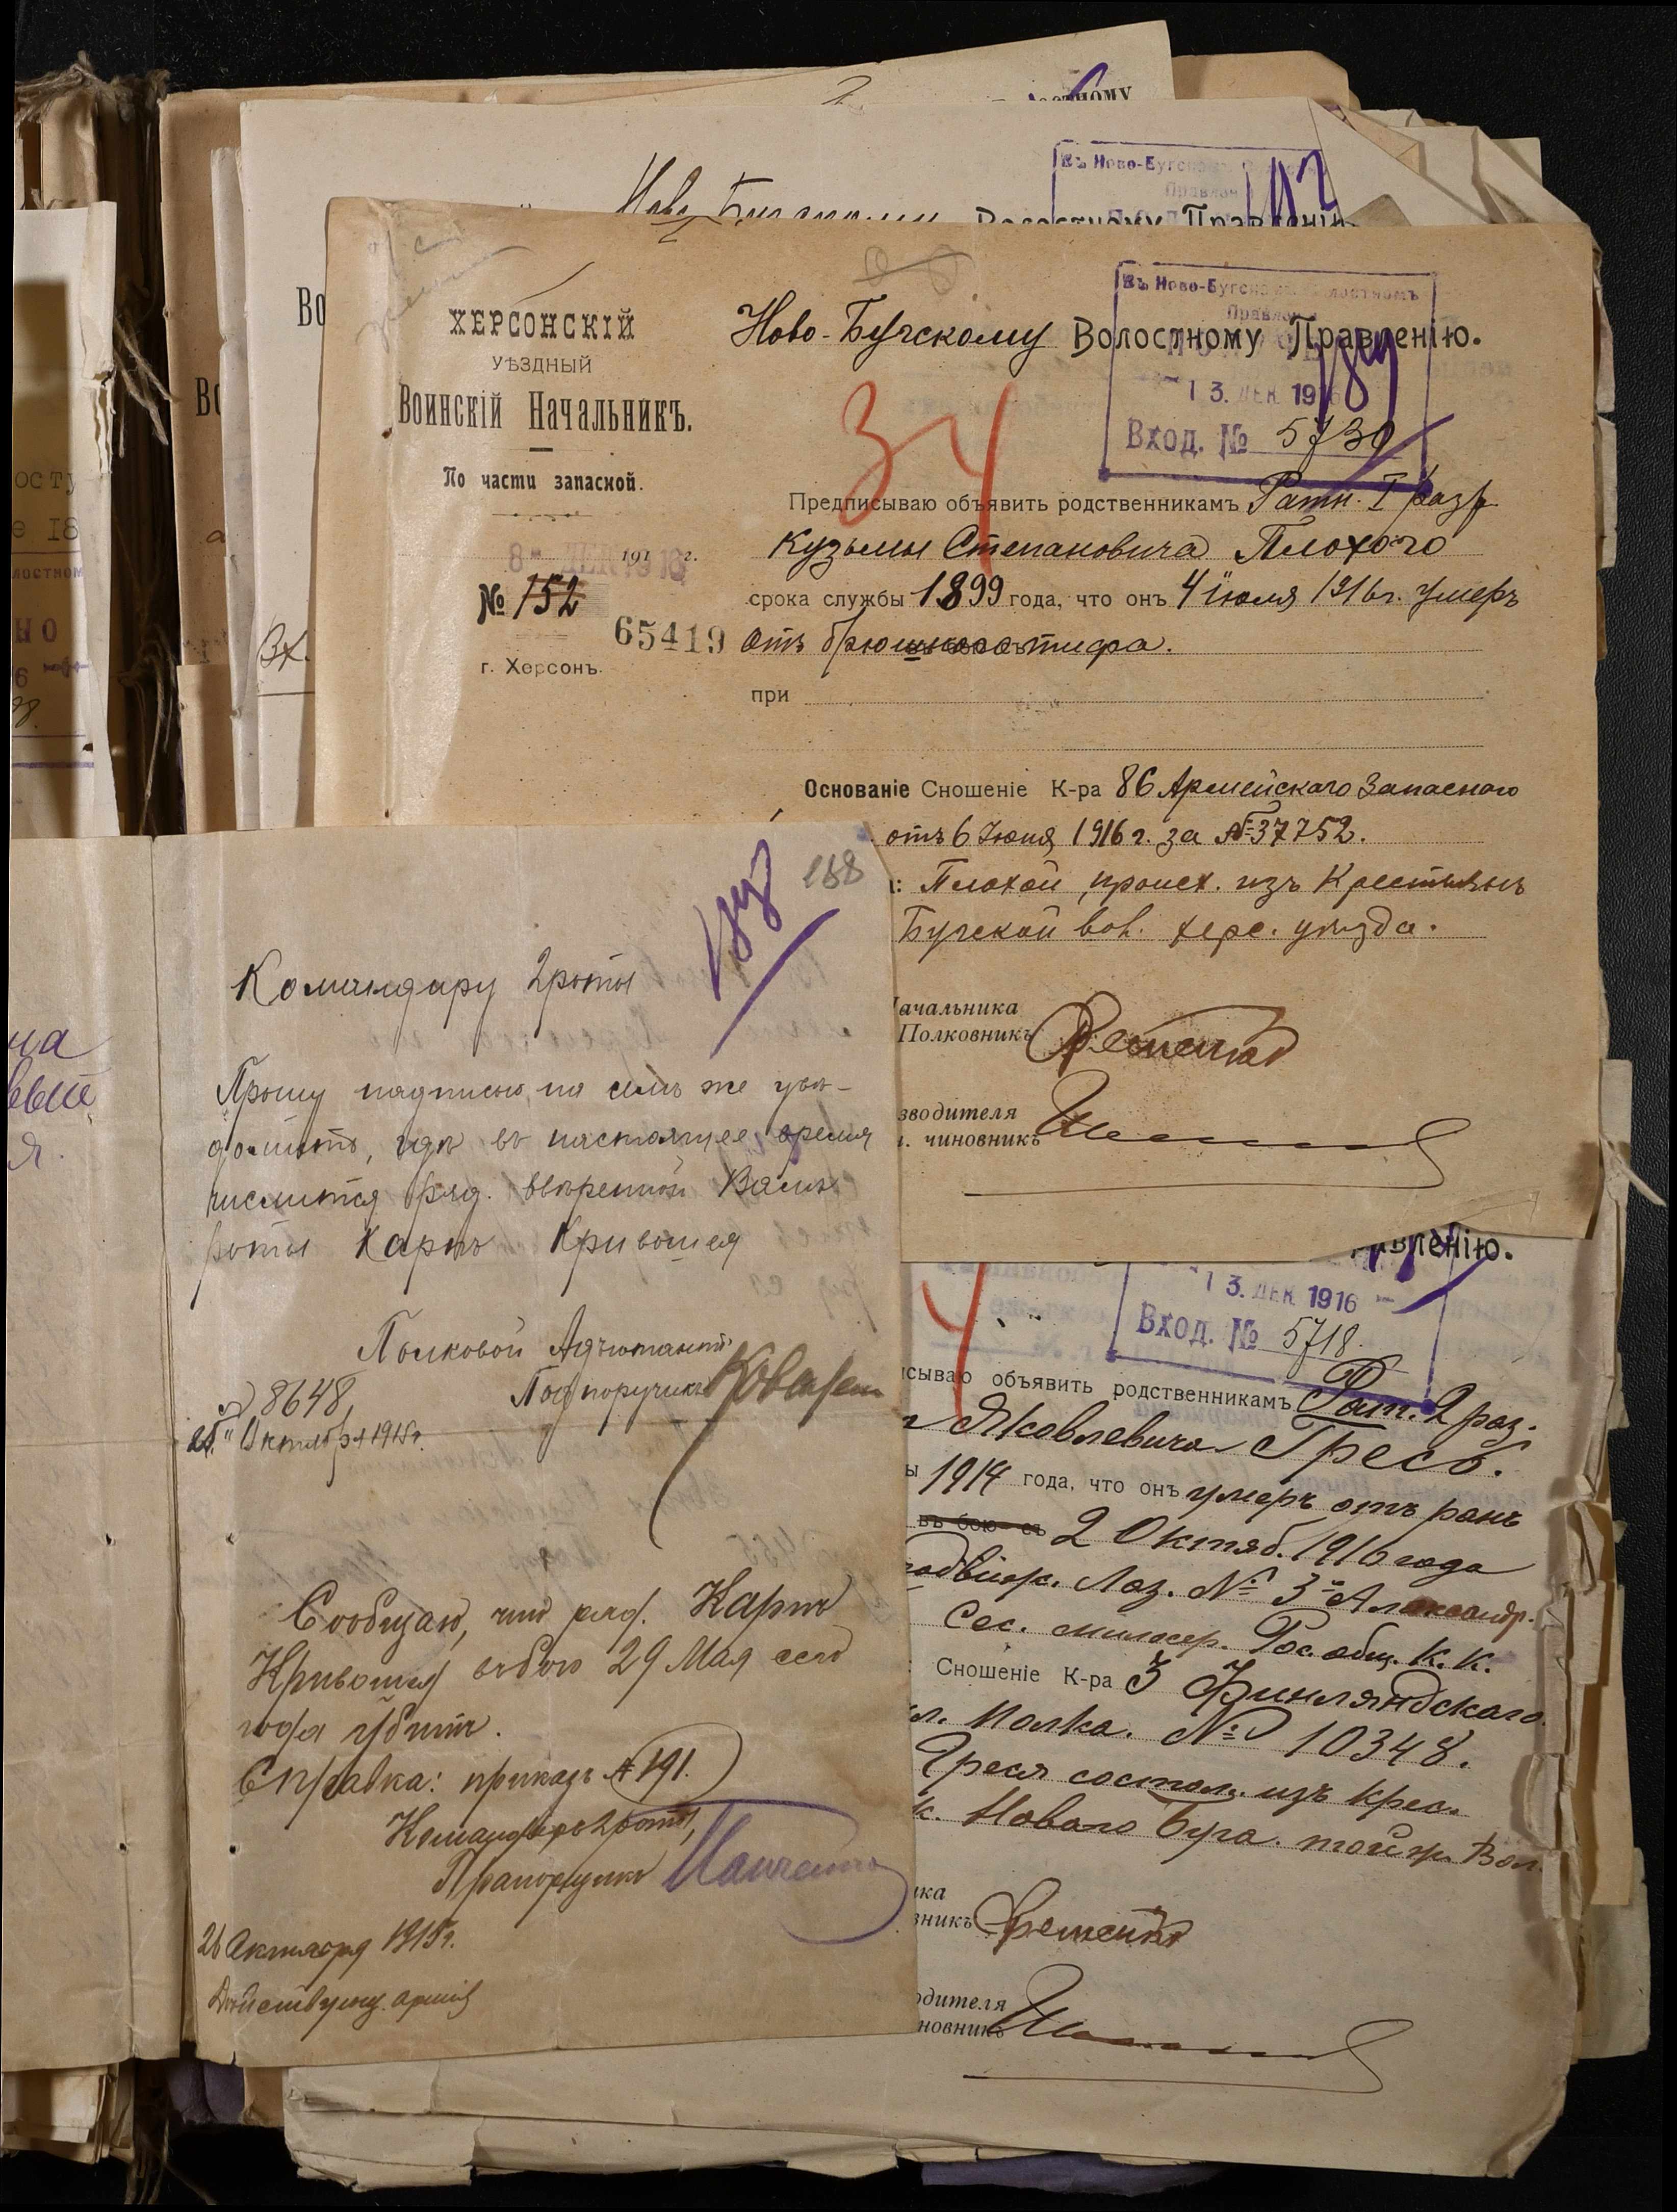 Волостному Правленію
ХЕРСОНСКІЙ
УѢЗДНЫЙ
Воинскій Начальникъ.
По части запасной.
8 ДЕК 1916 г.
№ 152
65419
г. Херсонъ.
Ново-Бугскому Волостному Правленію.
Въ Ново-Бугскомъ Волостномъ
Правлен
13. ДЕК 1916
Вход. № 5730
34
Предписываю объявить родственникамъ Ратн. I разр
Кузьмы Степановича Плохого
срока службы 1899 года, что онъ 4 Іюля 1916 г. умеръ
отъ брюшного тифа.
при
Основаніе Сношеніе К-ра 86 Армейскаго Запаснаго
отъ 6 Іюня 1916 г. за № 37752.
: Плохой, происх. изъ Крестьянъ
Бугской вол. херс. уѣзда.
ачальника
Полковникъ
зводителя
. чиновникъ
188
Командиру 2 роты
Прошу надписью на семъ же уве-
домить, гдѣ въ настоящее время
числится ряд. ввѣренной Вамъ
роты Карпъ Кривошея
Полковой Адъютантъ
Подпоручикъ
8648
25 " Октября 1915 г.
Сообщаю, что ряд. Карпъ
Кривошея въ бою 29 Мая сего
года убитъ.
Справка: приказъ № 191.
Командиръ 2 роты,
Прапорщикъ
26 Октября 1915 г.
Действующ. армія
равленію.
13. ДЕК 1916
Вход. № 5718.
4
сываю объявить родственникамъ Рат. 2 раз.
Яковлевича Гресь.
ы 1914 года, что онъ умеръ отъ ранъ
въ бою съ 2 Октяб. 1916 года
Лаз. № 3й Александр.
Сес. милосер. Рос. общ. К. К.
: Сношеніе К-ра 3 Финляндскаго
л. Полка. № 10348.
Гресь состоя. изъ крес.
Новаго Буга. той ж. Вол.
ика
вникъ
одителя
новникъ